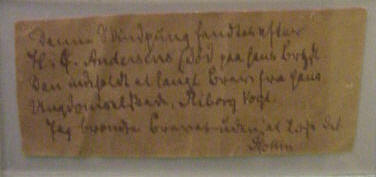 Denne Skindpung fandtes efter
H. C. Andersens Død paa hans Bryst.
Den indeholdt et langt Brev fra hans
Ungdomselskede, Riborg Voigt.
Jeg brændte Brevet uden at læse det.